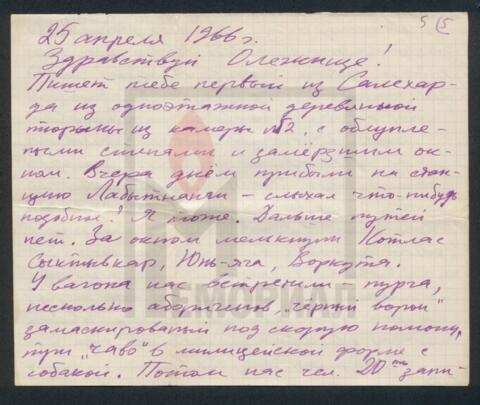 5 (5
25 апреля 1966 г.
Здравствуй Олежище!
Пишет тебе первый из Салехар-
да из одноэтажной деревянной
тюрьмы из камеры №2, с облупле-
ными стенами и замёрзшим ок-
ном. Вчера днём прибыли на стан-
цию Лабытнанги – слыхал что-нибудь
подобное? Я тоже. Дальше путей
нет. За окном мелькнули Котлас
Сыктывкар, Юнь-яга, Воркута.
У вагона нас встретили пурга,
несколько аборигенов, "чёрный ворон"
замаскированый под скорую помощь,
"чаво" в милицейской форме с
собакой. Потом нас чел. 20ть запи-
МЕМОРИАЛ